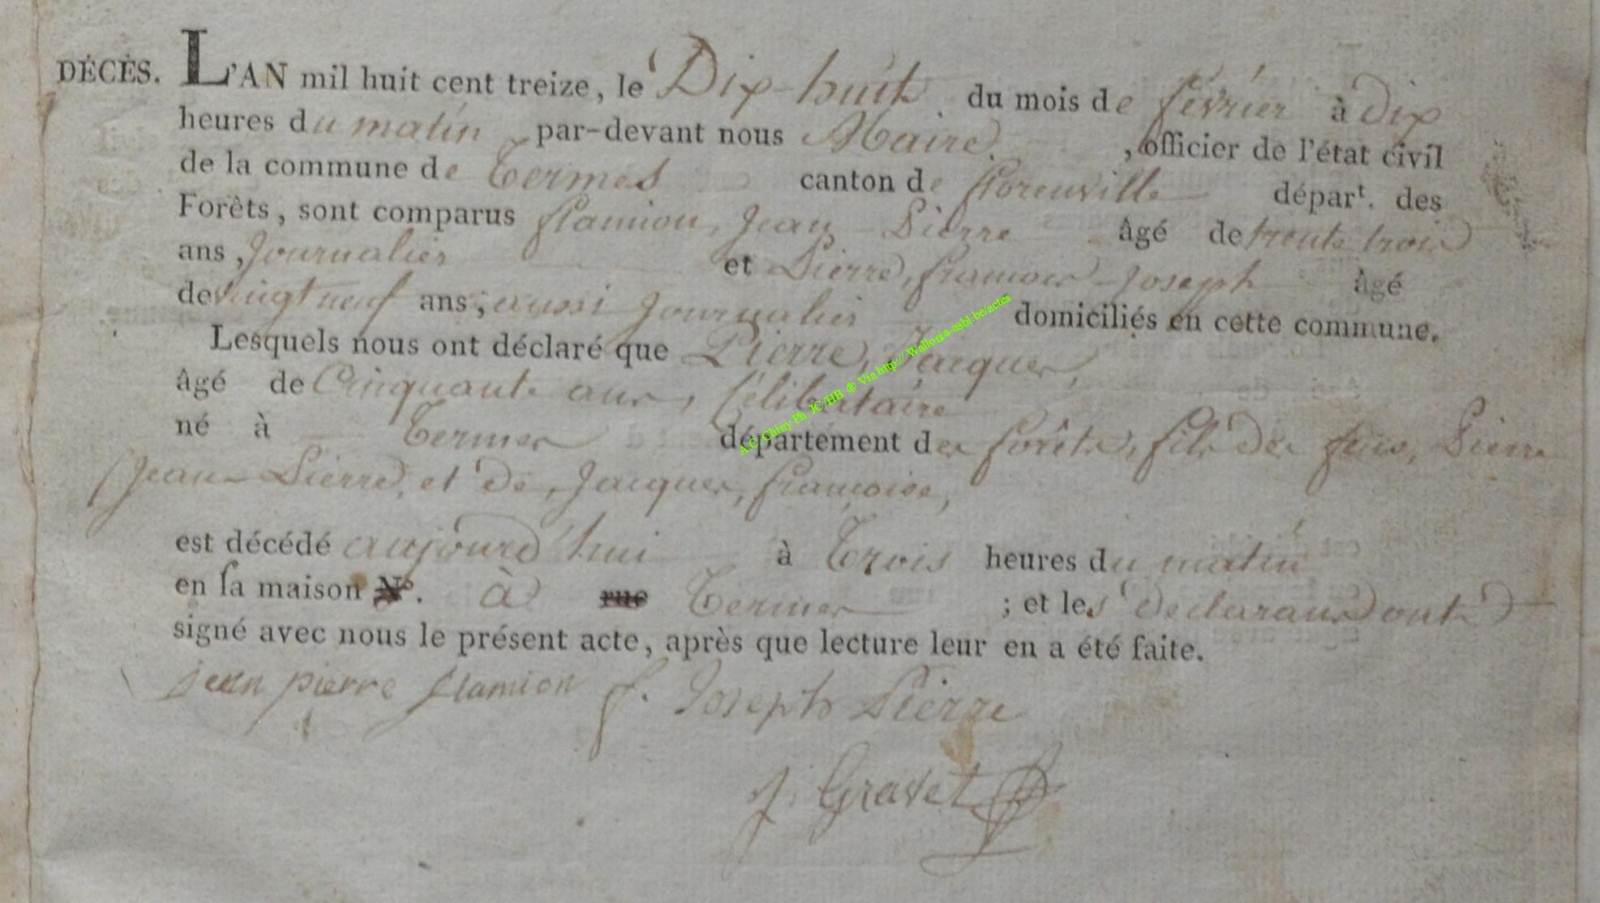 DÉCÈS. L'AN mil huit cent treize, le Dix-huit du mois de février à dix
heures du matin par-devant nous Maire, officier de l'état civil
de la commune de Termes canton de florenville départ. des
Forêts, sont comparus flamion, Jean Pierre âgé de trente trois
ans, Journalier et Pierre, francois-Joseph âgé
de vingt neuf ans, aussi Journalier domiciliés en cette commune.
Lesquels nous ont déclaré que Pierre, Jacques,
âgé de Cinquante ans, Célibataire
né à Termes département des forêts, fils des feus, Pierre
Jean-Pierre, et de, Jacques, françoise,
est décédé aujourd'hui à Trois heures du matin
en sa maison N°. à rue Termes ; et les déclarans ont
signé avec nous le présent acte, après que lecture leur en a été faite.
jean pierre flamion f. Joseph Pierre
J. Gravet